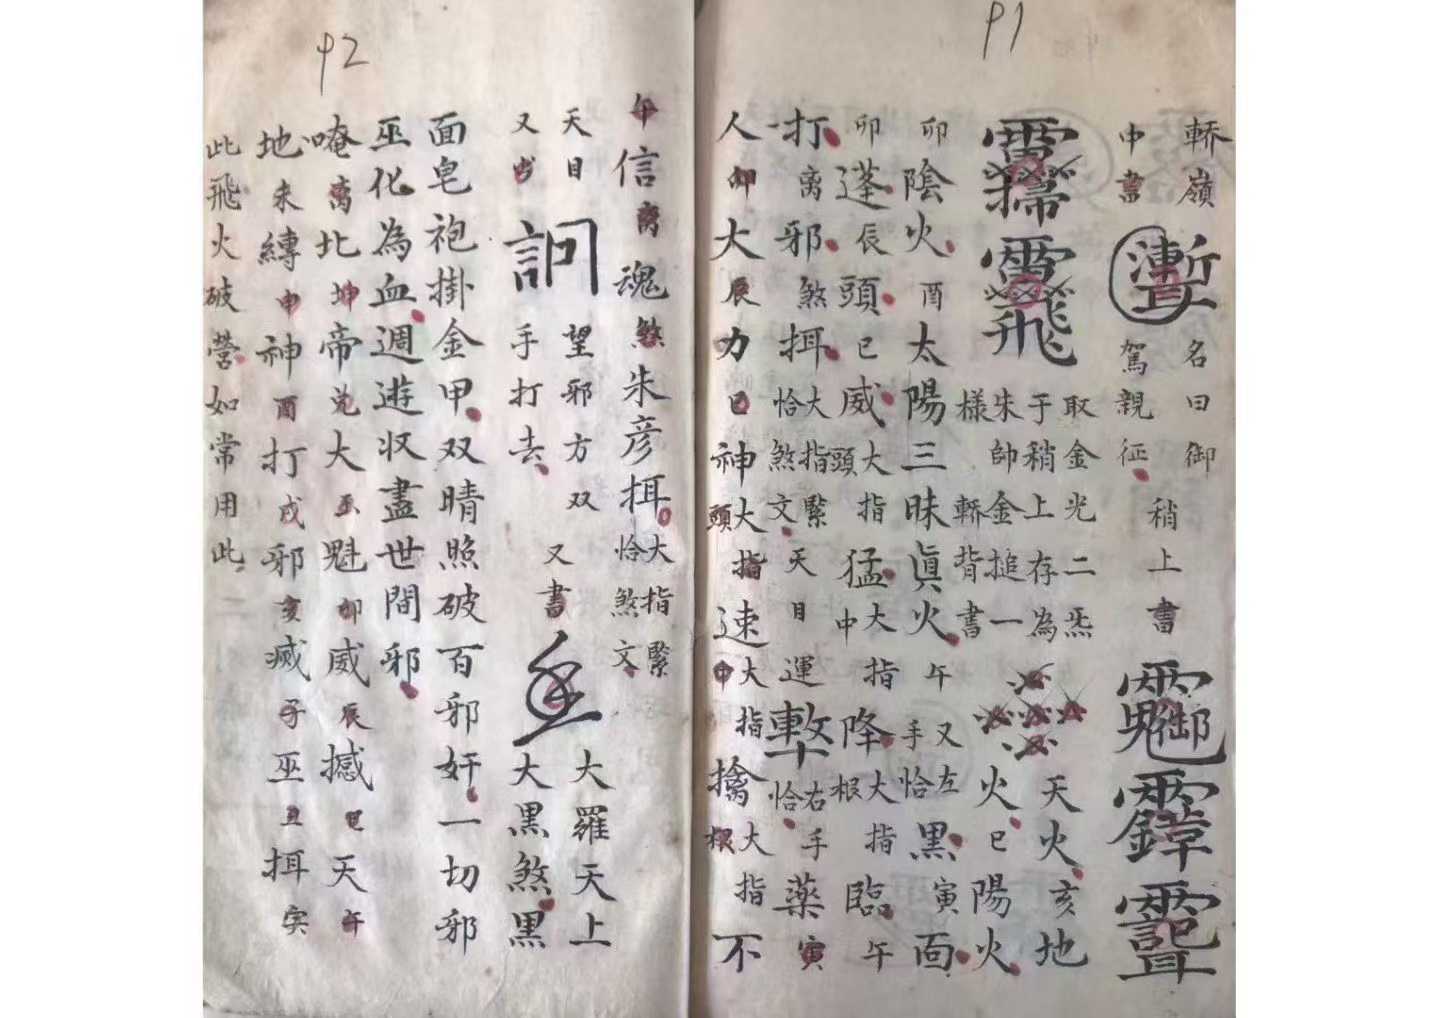 P1
轎嶺 名曰御
中書 駕親征
稍上書
取金光二炁
于稍上存為
朱帥金搥一
樣 轎背書
天火亥地
火巳陽火
卯陰火酉太陽三昧真火午又左手恰黑寅面
卯蓬辰頭巳威大指頭猛大指中降大指根臨午
打離邪煞挕恰大指煞緊文天目運 恰右手薬寅
人卯大辰力巳神大指頭速大指中擒大指根不
P2
午信离魂煞朱彥挕恰大指煞緊文
天目 望邪方双 又書 大羅天上
又書 手打去 大黑煞黑
面皂袍掛金甲双晴照破百邪奸一切邪
巫化為血週遊収盡世間邪
唵离北坤帝兌大巫魁卯威辰撼巳天午
地未縛申神酉打戌邪亥滅子巫丑挕寅
此飛火破營如常用此